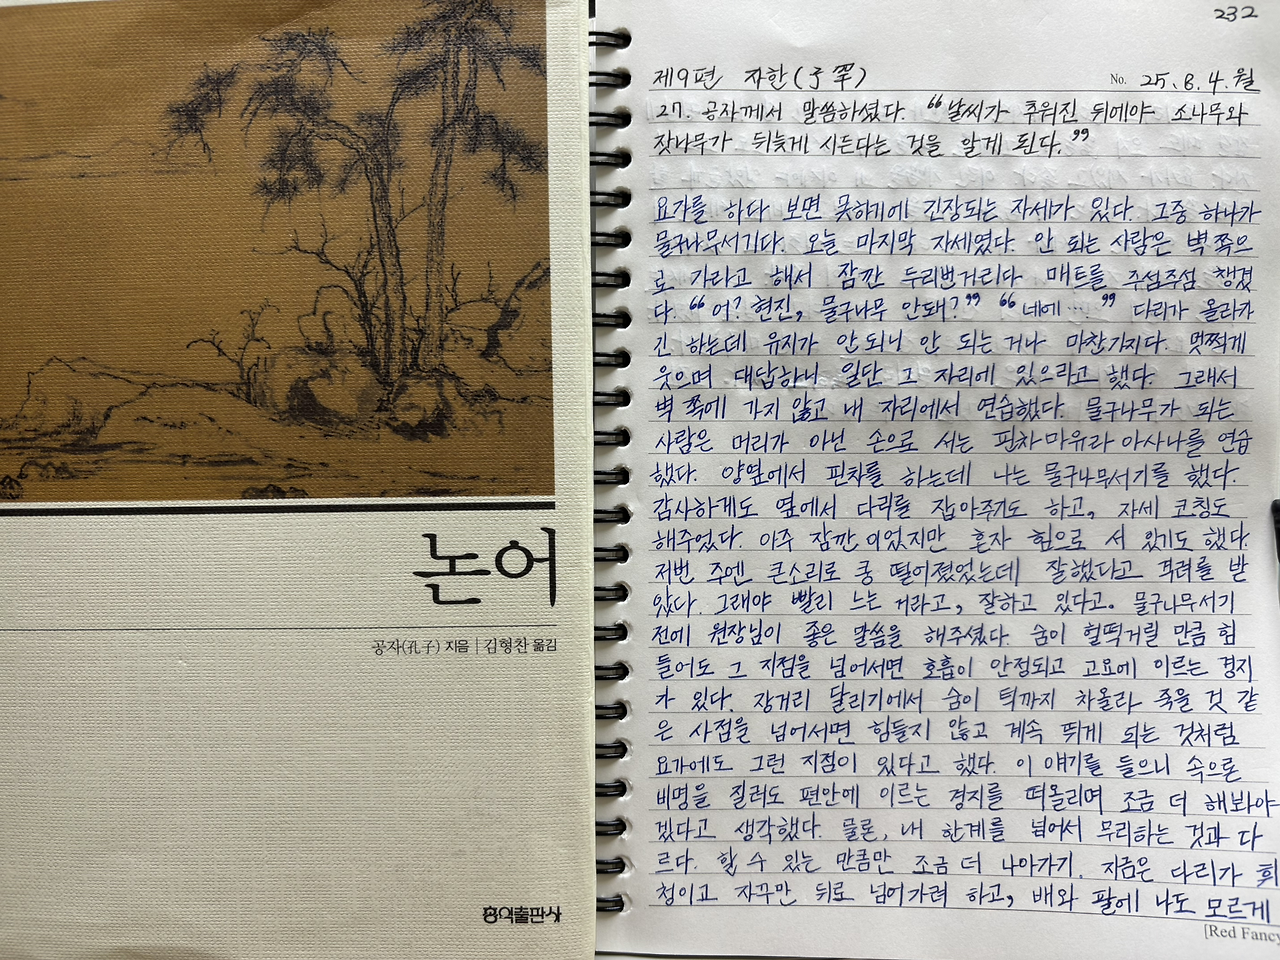 논어
공자(孔子) 지음 | 김형찬 옮김
홍익출판사
232
제9편 자한(子罕) No. 25. 8. 4. 월
27. 공자께서 말씀하셨다. "날씨가 추워진 뒤에야 소나무와
잣나무가 뒤늦게 시든다는 것을 알게 된다."
요가를 하다 보면 못하기에 긴장되는 자세가 있다. 그중 하나가
물구나무서기다. 오늘 마지막 자세였다. 안 되는 사람은 벽쪽으
로 가라고 해서 잠깐 두리번거리다 매트를 주섬주섬 챙겼
다. "어? 현진, 물구나무 안돼?" "네에…" 다리가 올라가
긴 하는데 유지가 안되니 안 되는거나 마찬가지다. 멋쩍게
웃으며 대답하니 일단 그 자리에 있으라고 했다. 그래서
벽 쪽에 가지 않고 내 자리에서 연습했다. 물구나무가 되는
사람은 머리가 아닌 손으로 서는 핀차마유라아사나를 연습
했다. 양옆에서 핀차를 하는데 나는 물구나무서기를 했다.
감사하게도 옆에서 다리를 잡아주기도 하고, 자세 코칭도
해주었다. 아주 잠깐이었지만 혼자 힘으로 서 있기도 했다.
저번 주엔 큰소리로 쿵 떨어졌었는데 잘했다고 격려를 받
았다. 그래야 빨리 느는 거라고, 잘하고 있다고. 물구나무서기
전에 원장님이 좋은 말씀을 해주셨다. 숨이 헐떡거릴 만큼 힘
들어도 그 지점을 넘어서면 호흡이 안정되고 고요에 이르는 경지
가 있다. 장거리 달리기에서 숨이 턱까지 차올라 죽을 것 같
은 사점을 넘어서면 힘들지 않고 계속 뛰게 되는 것처럼
요가에도 그런 지점이 있다고 했다. 이 얘기를 들으니 속으론
비명을 질러도 편안에 이르는 경지를 떠올리며 조금 더 해봐야
겠다고 생각했다. 물론, 내 한계를 넘어서 무리하는 것과 다
르다. 할 수 있는 만큼만 조금 더 나아가기. 지금은 다리가 휘
청이고 자꾸만 뒤로 넘어가려 하고, 배와 팔에 나도 모르게
[Red Fancy